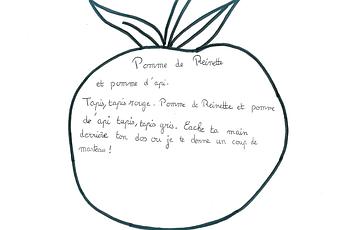 Pomme de Reinette
et pomme d'api.
Tapis, tapis rouge. Pomme de Reinette et pomme
de'api tapis, tapis gris. Cache ta main
derrière ton dos ou je te donne un coup de
marteau !